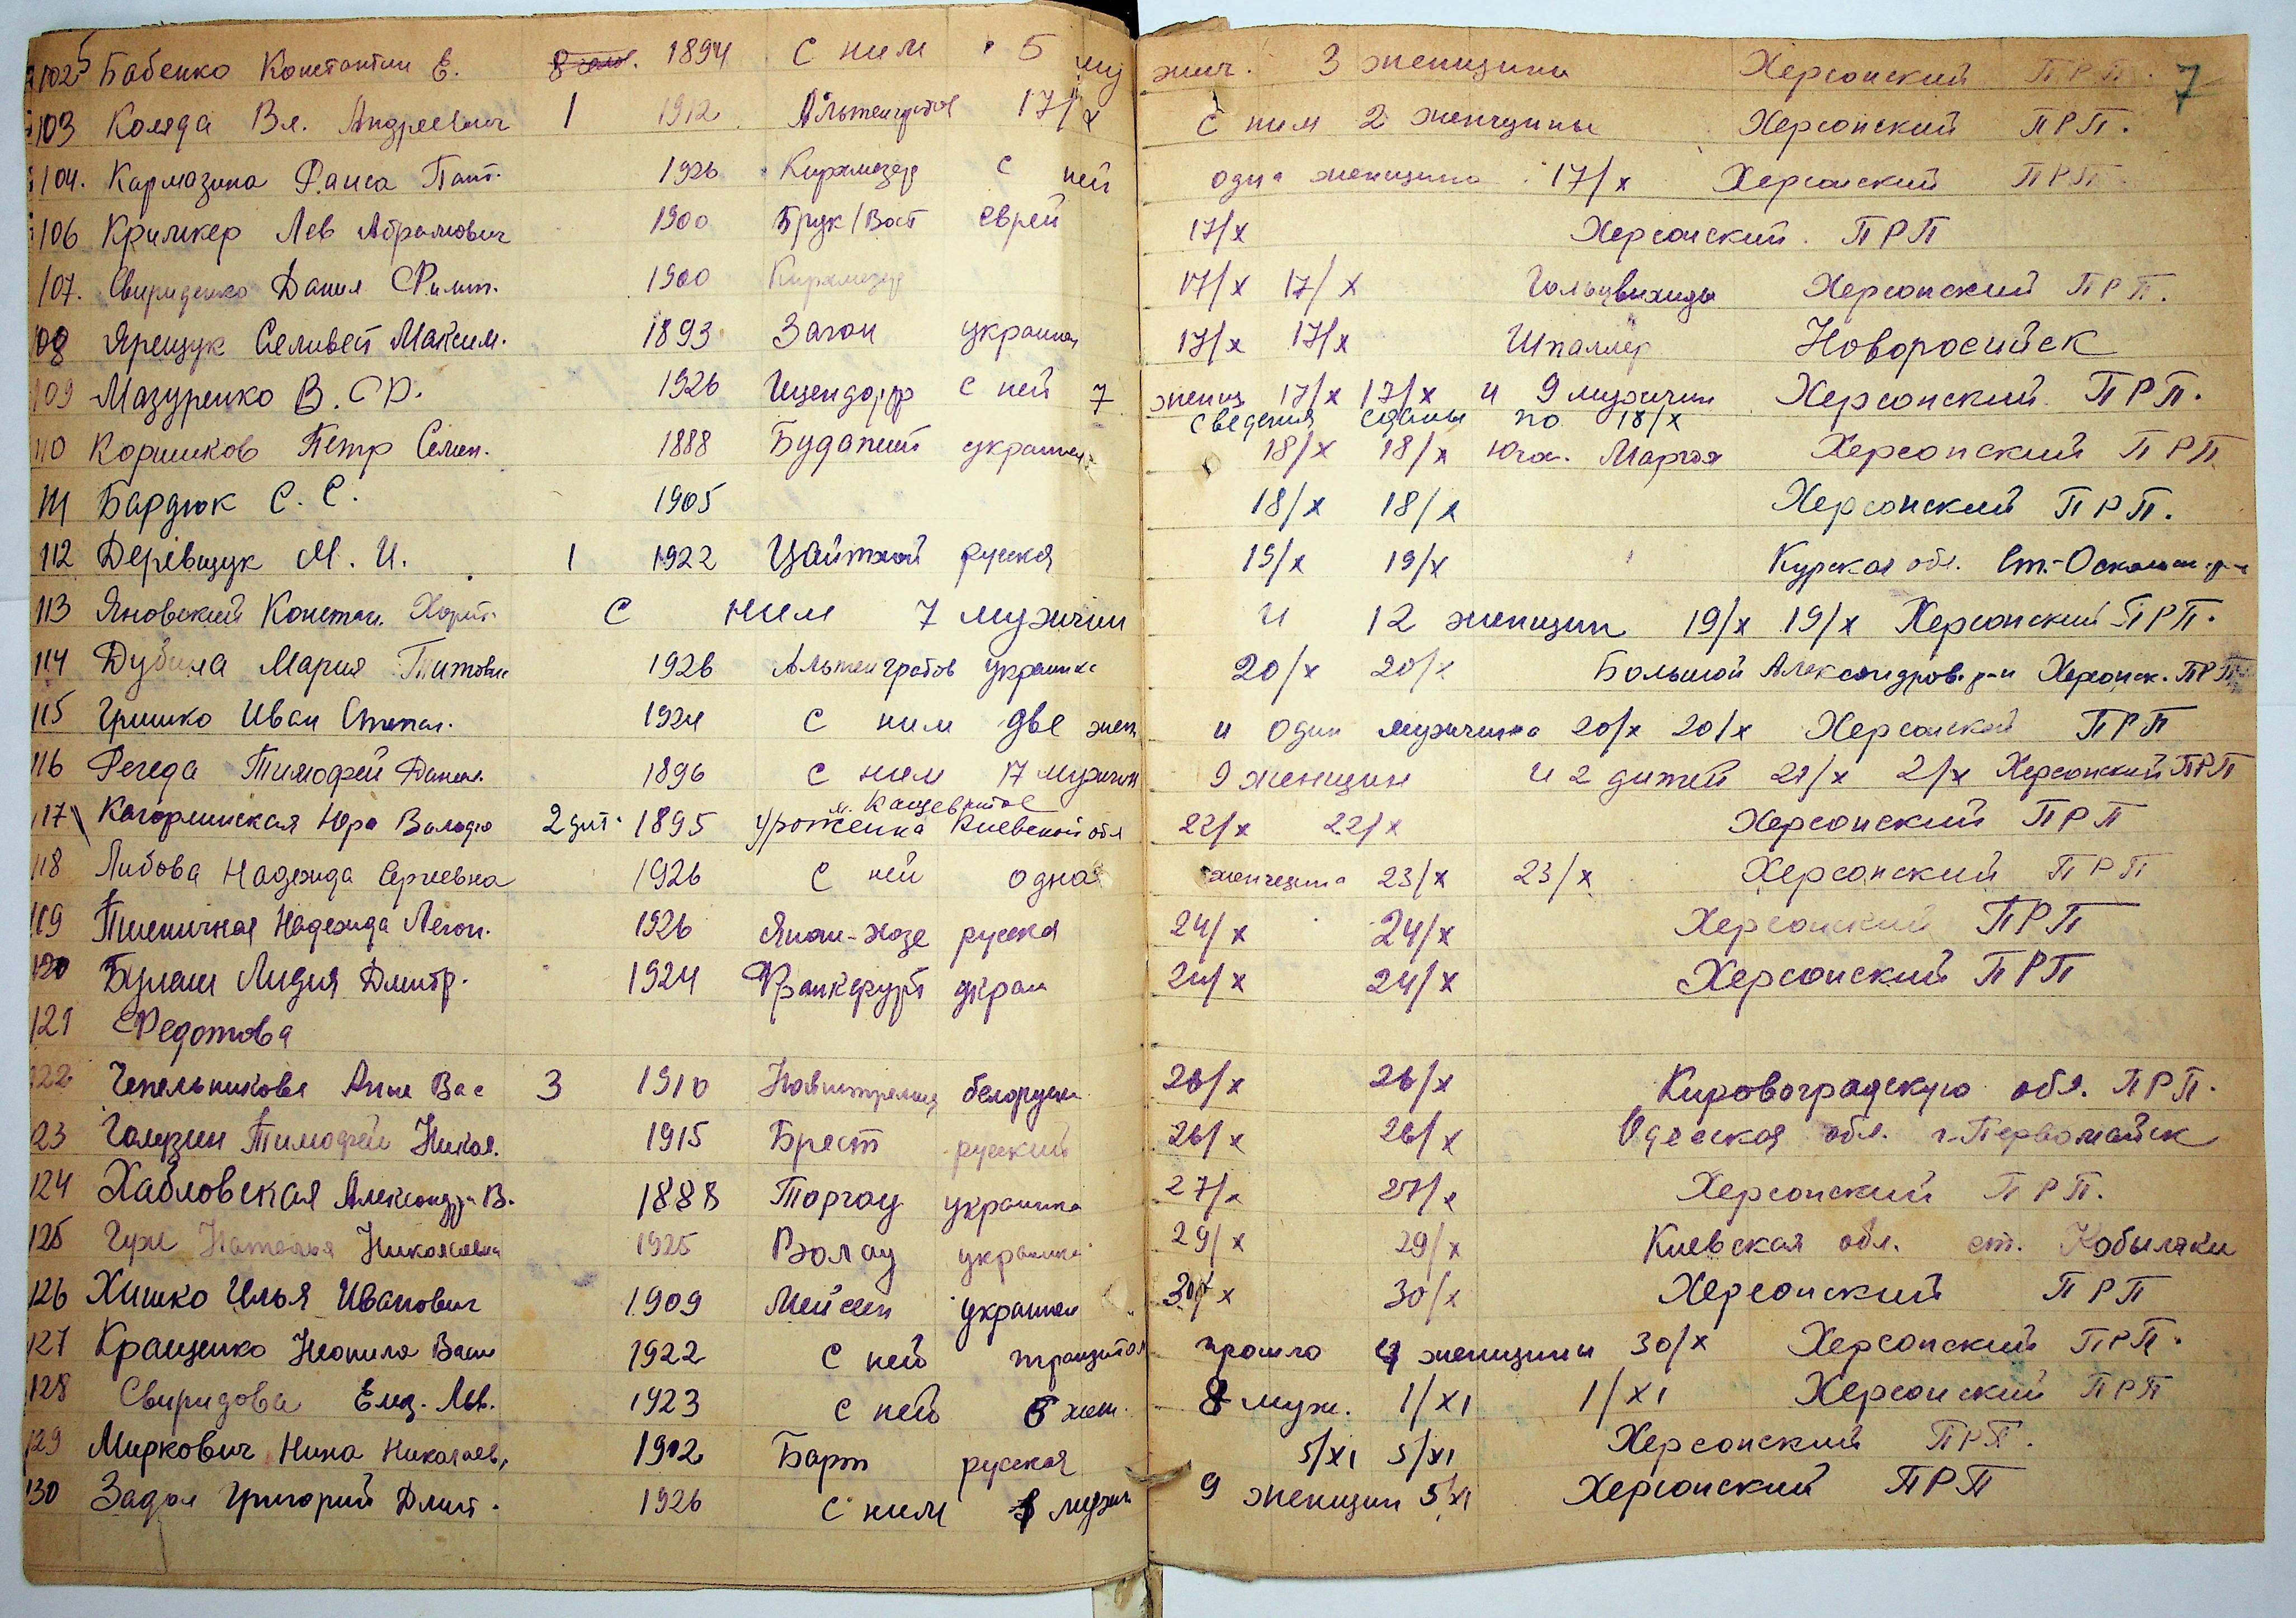 102 5 Бабенко Константин Е. 8 чел. 1894 с ним 5 муж
жич. 3 женщины Херсонский ПРП. 7
103 Коляда Вл. Андреевич 1 1912 Альтенграбов 17/x
с ним 2 женщины Херсонский ПРП.
104. Кармазина Раиса Пант. 1926 Кирхмезер с ней
одна женщина 17/x Херсонский ПРП
106 Кримкер Лев Абрамович 1900 Брук/Васт еврей
17/x Херсонский ПРП
107. Свириденко Данил Фили. 1900 Кирхмезер
17/x 17/x Херсонский ПРП.
108 Ярещук Селивест Максим. 1893 Заган украинец
17/x 17/x Шпаллер Новоросийск
109 Мазуренко В. Ф. 1926 с ней 7
женщ 17/x 17/x и 9 мужчин Херсонский ПРП.
сведения сданы по 18/x
110 Коршиков Петр Семен. 1888 Будапешт украинец
18/x 18/x Юга. Мария Херсонский ПРП
111 Бардюк С. С. 1905
18/x 18/x Херсонский ПРП.
112 Деревщук М. И. 1 1922 Цайтхай русская
19/x 19/x Курская обл. Ст.-Осколь р-н
113 Яновский Констан. Харит. с ним 7 мужчин
и 12 женщин 19/x 19/x Херсонский ПРП.
114 Дубила Мария Титовн 1926 Альтенграбов украинка
20/x 20/x Большой Александров. р-н Херсонск. ПРП
115 Гришко Иван Степан. 1924 с ним две жен
и один мужчина 20/x 20/x Херсонский ПРП
116 Регеда Тимофей Данил. 1896 с ним 17 мужчин
9 женщин и 2 дитей 21/x 21/x Херсонский ПРП
м. Кащевитое
117 Кагорлинская Юра Володю 2 дит. 1895 уроженка Киевской обл
22/x 22/x Херсонский ПРП
118 Либова Надежда Сергеевна 1926 с ней одна
женщина 23/x 23/x Херсонский ПРП
119 Пшеничная Надежда Леон. 1926 русская
24/x 24/x Херсонский ПРП
120 Булаш Лидия Дмитр. 1924 Франкфурт украи
24/x 24/x Херсонский ПРП
121 Федотова
122 Чепельникова Анна Вас 3 1910 белорусск
26/x 26/x Кировоградскую обл. ПРП.
123 Галузин Тимофей Никол. 1915 Брест русский
26/x 26/x Одесская обл. г. Первомайск
124 Хабловская Александра В. 1888 Торгау украинка
27/x 27/x Херсонский ПРП.
125 Гуж Наталья Николаевна 1925 Волау украинка
29/x 29/x Киевская обл. ст. Кобыляки
126 Хишко Илья Иванович 1909 Мейсен украинец
30/x 30/x Херсонский ПРП
127 Кращенко Неонила Васи 1922 с ней транзитом
прошло 4 женщины 30/x Херсонский ПРП.
128 Свиридова Елиз. Льв. 1923 с ней 5 жен.
8 муж. 1/XI 1/XI Херсонский ПРП
129 Миркович Нина Николаев. 1902 Барт русская
5/XI 5/XI Херсонский ПРП.
130 Задол Григорий Дмит. 1926 с ним 8 мужч
9 женщин 5/XI Херсонский ПРП